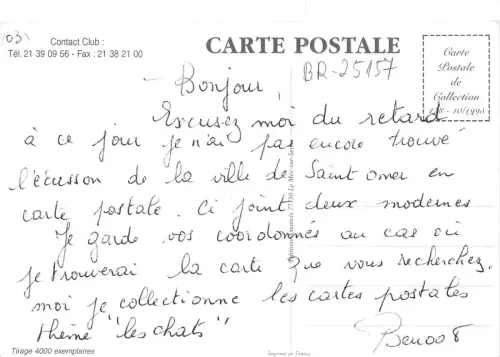 031
Contact Club :
Tél. 21 39 09 56 - Fax : 21 38 21 00
CARTE POSTALE
BR-25157
Carte
Postale
de
Collection
10/1995
Bonjour,
Excusez moi du retard
à ce jour je n'ai pas encore trouvé
l'écusson de la ville de Saint Omer en
carte postale. Ci joint deux modernes
Je garde vos coordonnés au cas où
je trouverai la carte que vous recherchez.
moi je collectionne les cartes postales
thème "les chats"
Tirage 4000 exemplaires
Imprimé en France